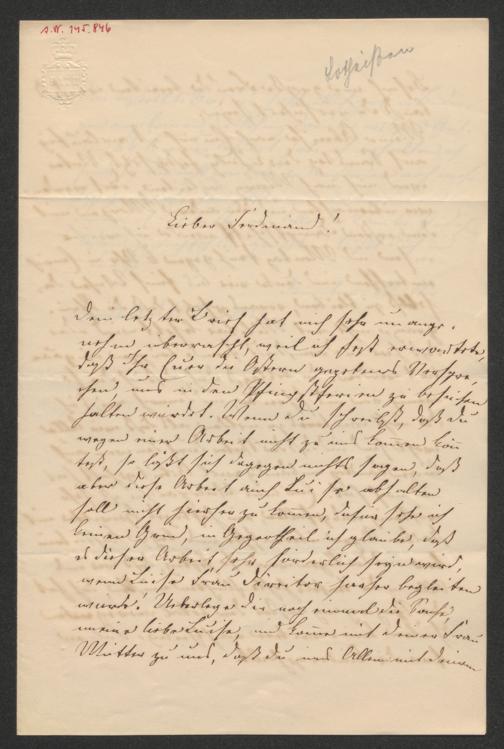 A.N. 145.846
Lotheißen
Lieber Ferdinand!
Dein letzter Brief hat mich sehr unange-
nehm überrascht, weil ich fest erwartete,
daß Ihr Euer zu Ostern gegebenes Verspre-
chen, uns in den Pfingstferien zu besuchen
halten würdet. Wenn du schreibst, daß du
wegen einer Arbeit nicht zu uns komen kön
test, so läßt sich dagegen nichts sagen, daß
aber diese Arbeit auch Luise abhalten
soll nicht hierher zu komen, dafür sehe ich
keinen Grund, im Gegentheil ich glaube, daß
es dieser Arbeit sehr förderlich seyn wird,
wenn Luise Frau Director hieher begleiten
würde! Ueberlege dir noch einmal die Sache,
meine liebe Luise, und kome mit deiner Frau
Mutter zu uns, daß du uns Allen mit deinem